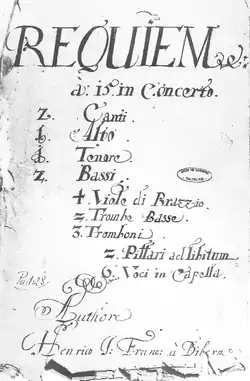 REQUIEM
à: 15. in Concerto.
2. Canti.
1. Alto
1. Tenore
2. Bassi.
4. Viole di Brazzio
2. Trombe Basse.
3. Tromboni
2. Piffari ad libitum
6. Voci in Capella.
Part: 28.
Authore
Henrico I: Franc: à Bibern